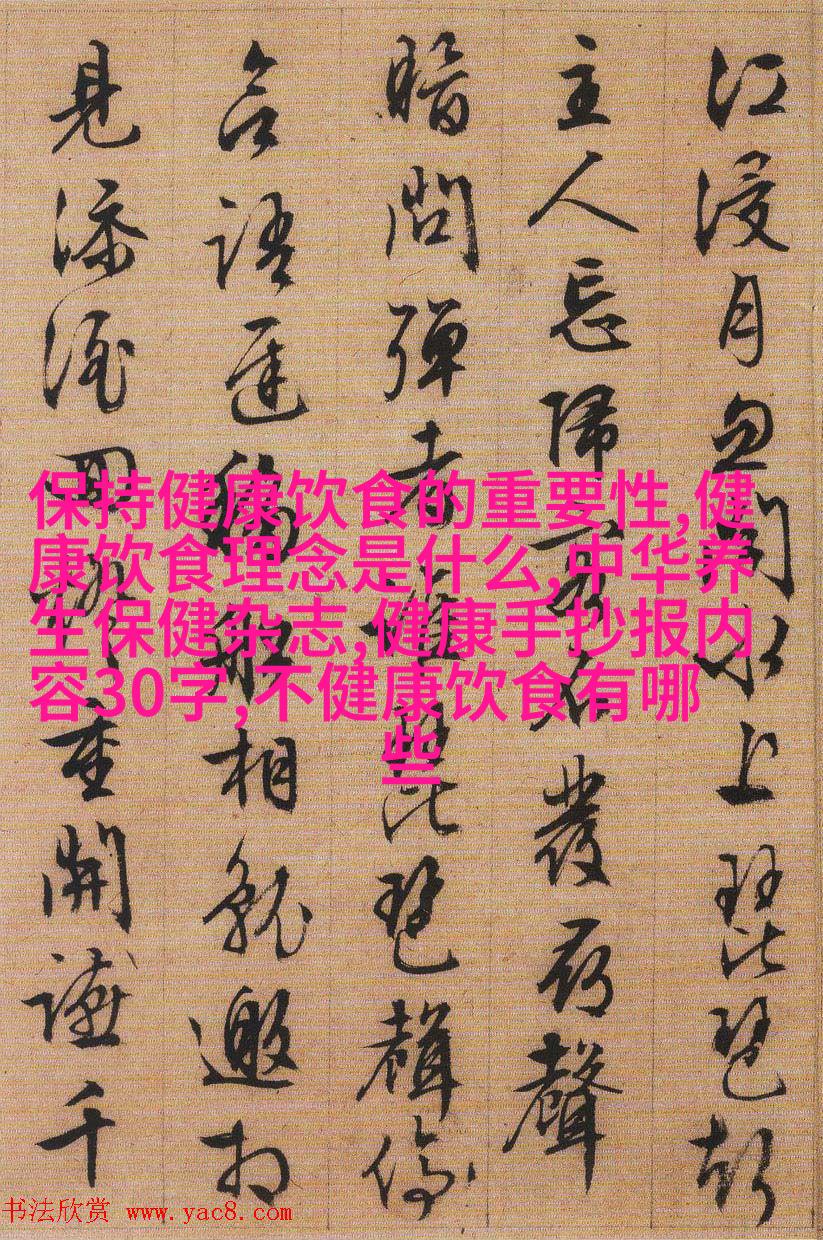 江浸月忽聞水上琵琶聲
主人忘歸客不發尋聲
暗問彈者誰琵琶聲停
含語遲移船相就邀相
見添酒回燈重開讌千
保持健康饮食的重要性,健
康饮食理念是什么,中华养
生保健杂志,健康手抄报内
容30字,不健康饮食有哪
些
书法欣赏 www.yac8.com